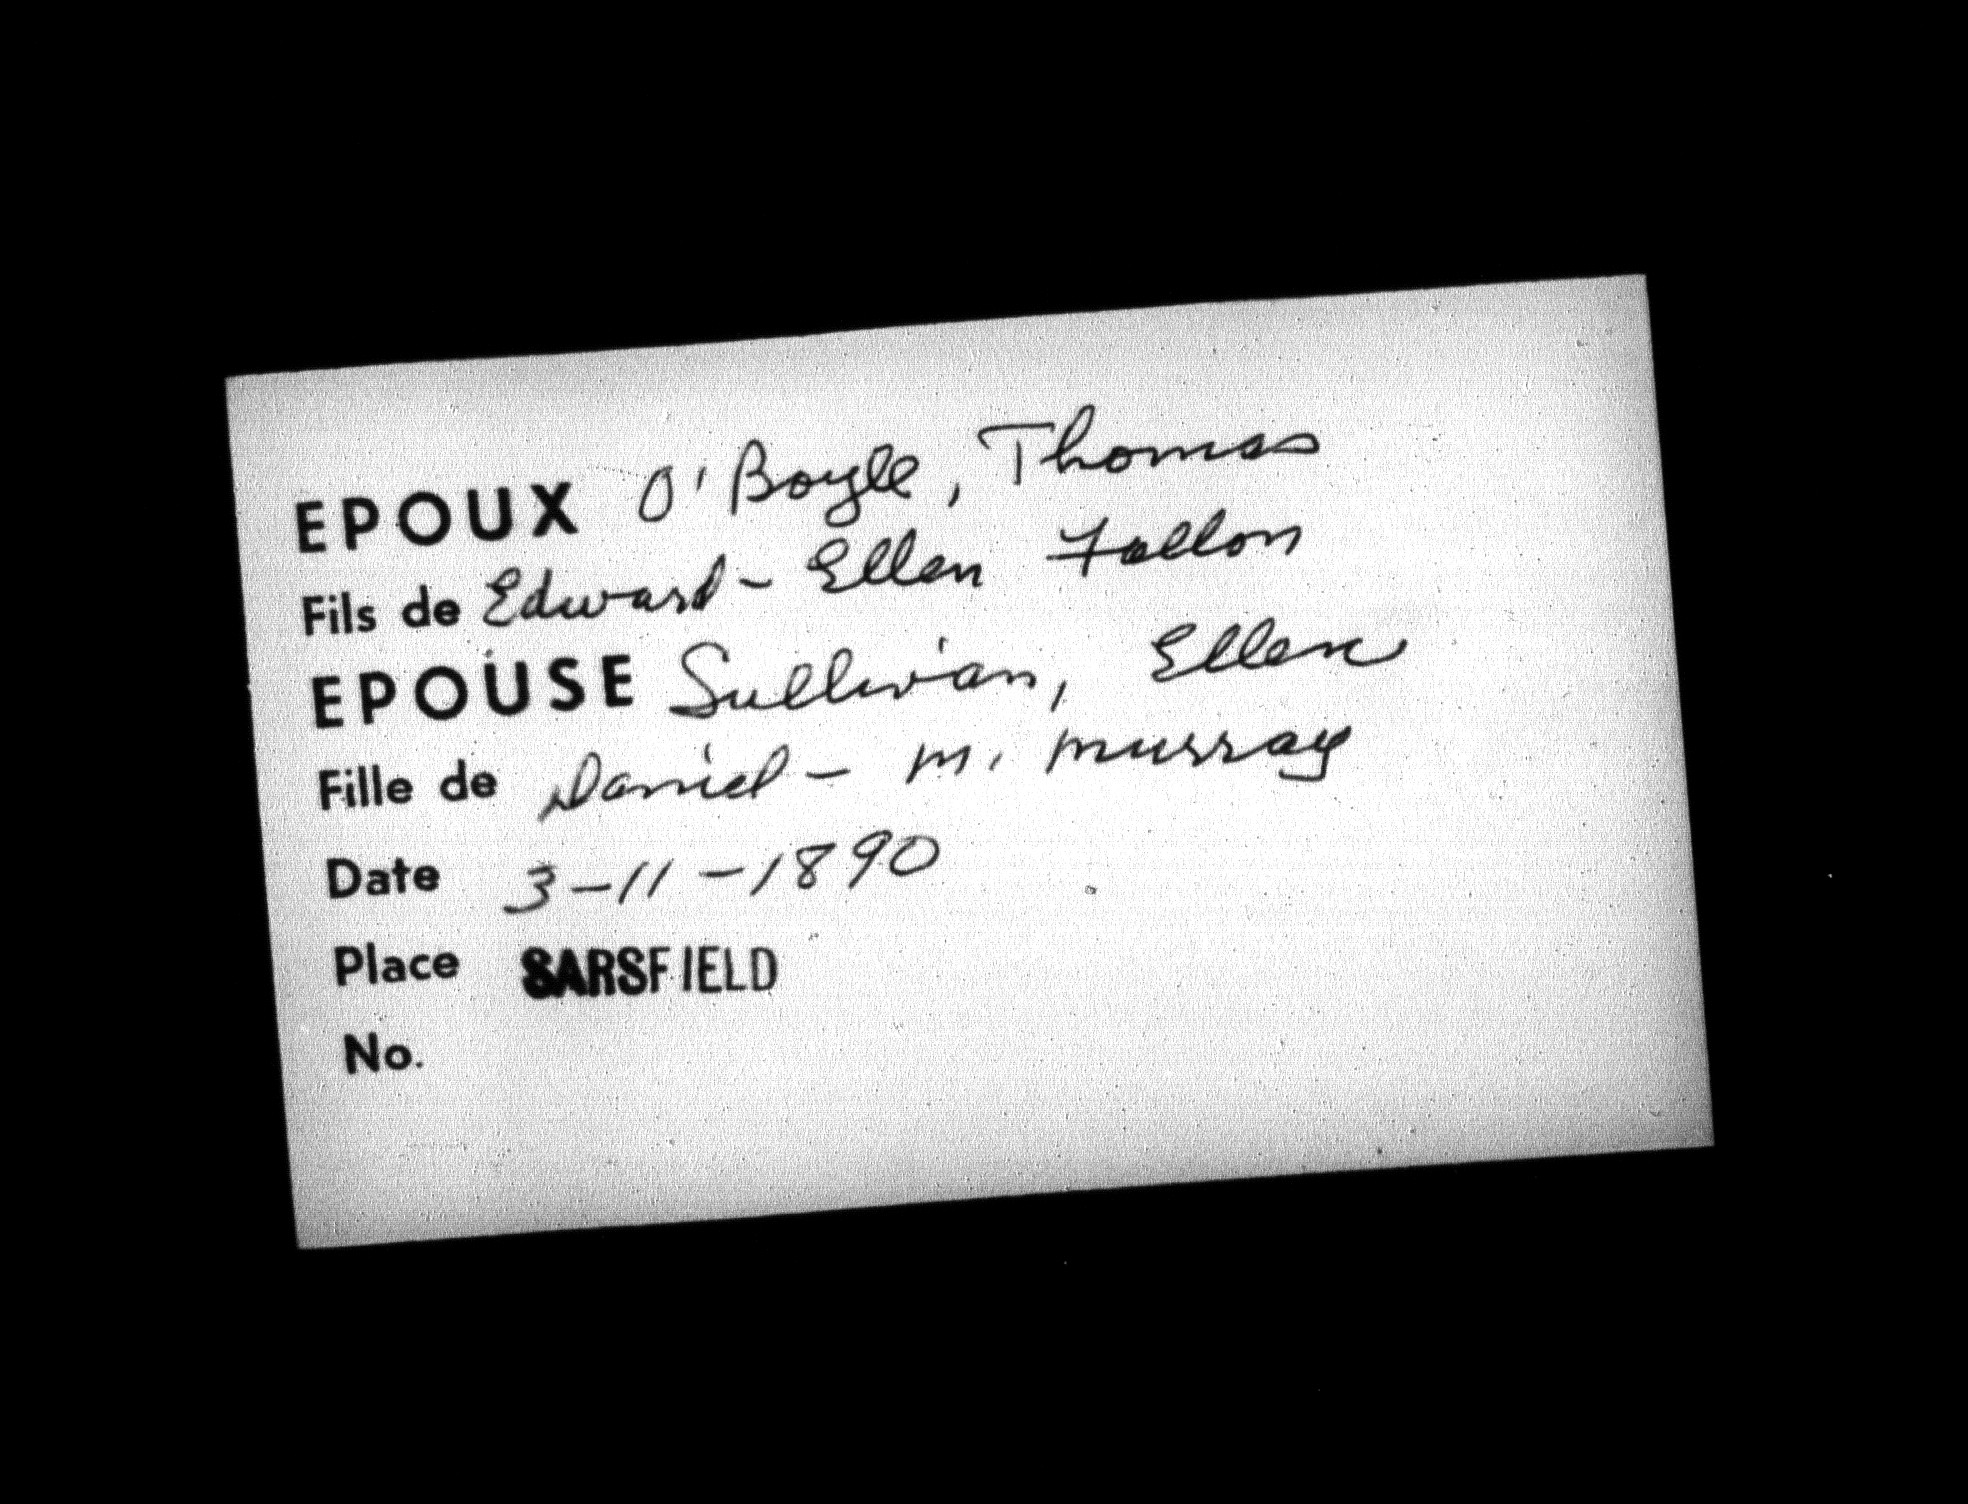 EPOUX O'Boyle, Thomas
Fils de Edward - Ellen Fallon
EPOUSE Sullivan, Ellen
Fille de Daniel - M. Murray
Date 3-11-1890
Place SARSFIELD
No.